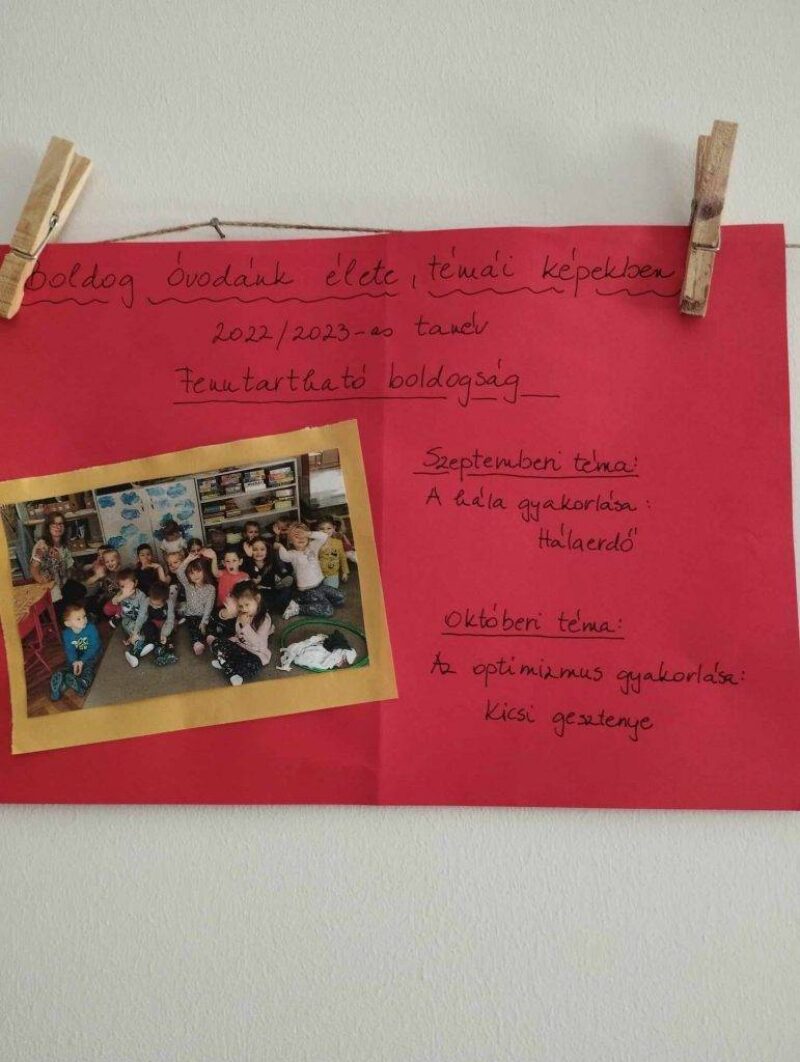 boldog óvodánk élete, témái képekben
2022/2023-as tanév
Fenntartható boldogság
Szeptemberi téma:
A hála gyakorlása:
Hálaerdő
Októberi téma:
Az optimizmus gyakorlása:
Kicsi gesztenye